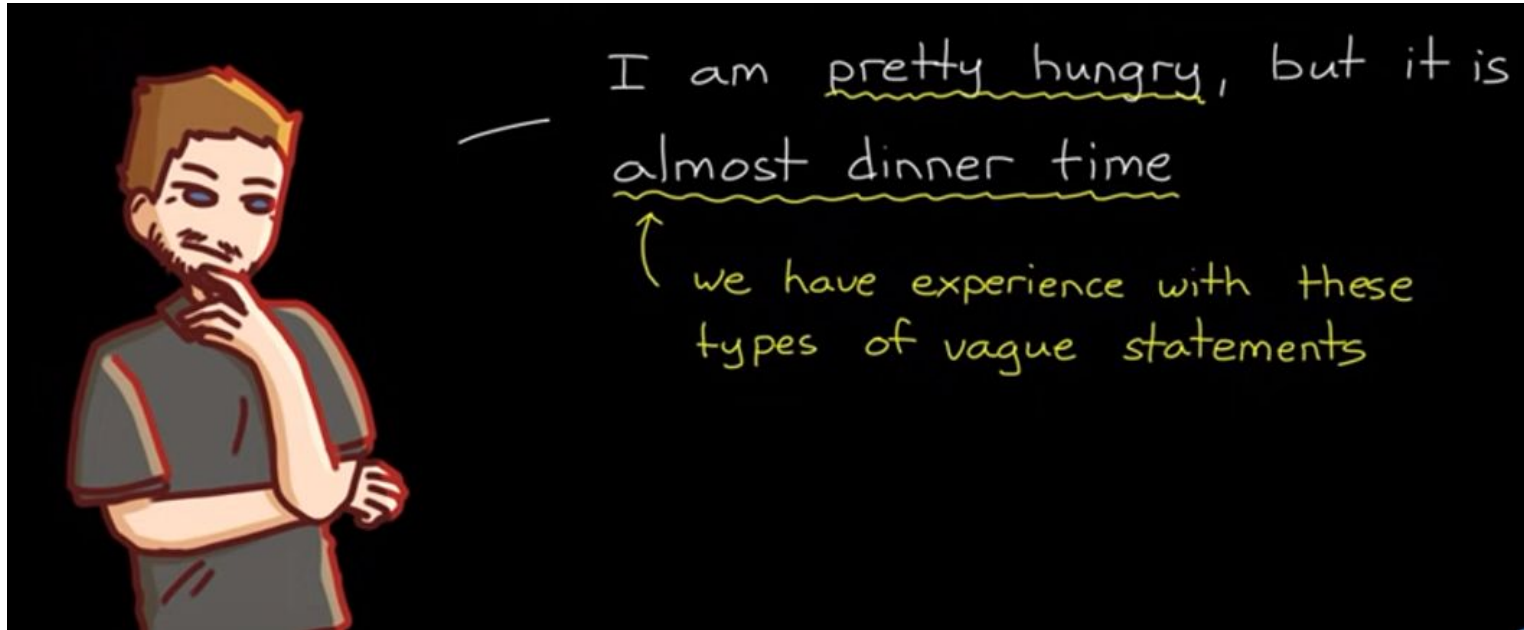 I am pretty hungry, but it is
almost dinner time
we have experience with these
types of vague statements